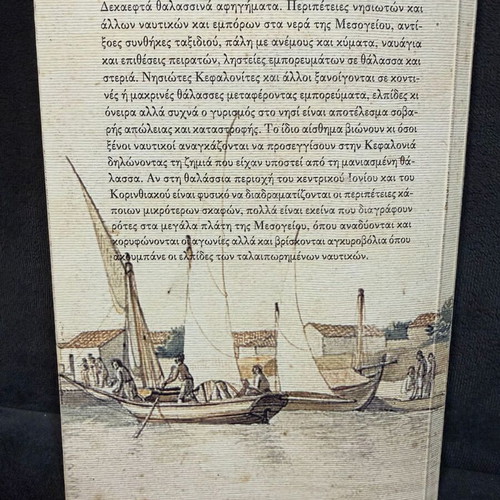 Δεκαεφτά θαλασσινά αφηγήματα. Περιπέτειες νησιωτών και
άλλων ναυτικών και εμπόρων στα νερά της Μεσογείου, αντί-
ξοες συνθήκες ταξιδιού, πάλη με ανέμους και κύματα, ναυάγια
και επιθέσεις πειρατών, ληστείες εμπορευμάτων σε θάλασσα και
στεριά. Νησιώτες Κεφαλονίτες και άλλοι ξανοίγονται σε κοντι-
νές ή μακρινές θάλασσες μεταφέροντας εμπορεύματα, ελπίδες κι
όνειρα αλλά συχνά ο γυρισμός στο νησί είναι αποτέλεσμα σοβα-
ρής απώλειας και καταστροφής. Το ίδιο αίσθημα βιώνουν κι όσοι
ξένοι ναυτικοί αναγκάζονται να προσεγγίσουν στην Κεφαλονιά
δηλώνοντας τη ζημιά που είχαν υποστεί από τη μανιασμένη θά-
λασσα. Αν στη θαλάσσια περιοχή του κεντρικού Ιονίου και του
Κορινθιακού είναι φυσικό να διαδραματίζονται οι περιπέτειες κά-
ποιων μικρότερων σκαφών, πολλά είναι εκείνα που διαγράφουν
ρότες στα μεγάλα πλάτη της Μεσογείου, όπου αναδύονται και
κορυφώνονται οι αγωνίες αλλά και βρίσκονται αγκυροβόλια όπου
ακουμπάνε οι ελπίδες των ταλαιπωρημένων ναυτικών.